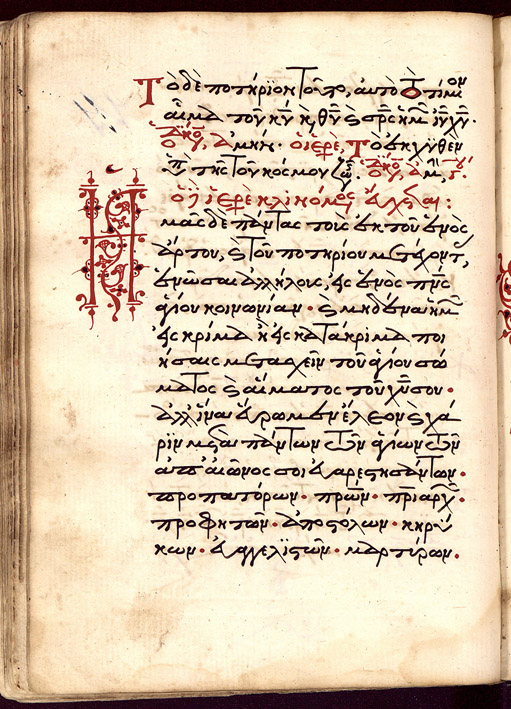 Τὸ δὲ ποτήριον Τοῦτο, αὐτὸ Τὸ τίμιον
αἷμα τοῦ κῦ κ, θῦ ς σρς ἡμ ἰῦ χῦ·
ἀμήν· ὁ ἱερε, Τὸ ἐκχυθὲν
ὑπὲρ τῆς Τοῦ κόσμου ζωῆς
ὁ ἱερε κλινόμενος εὔχεται:
Ημᾶς δὲ πάντας τοὺς ἐκ τοῦ ἑνὸς
ἄρτου, ς Τοῦ ποτηρίου μετέχοντ,
ἑνῶσαι ἀλλήλοις, εἰς ἑνὸς πνς
ἁγίου κοινωνίαν· ς μηδένα ἡμ
εἰς κρίμα ἢ εἰς κατάκριμα ποι
ήσαις μετασχεῖν τοῦ ἁγίου σώ
ματος ς αἵματος τοῦ χυ σου·
ἀλλ' ἵνα εὕρωμεν ἔλεον ς χά
ριν μετὰ πάντων τῶν ἁγίων τῶν
ἀπ' αἰῶνος σοι εὐαρεστησάντων·
προπατόρων· πρων· πριαρχ·
προφητῶν· ἀποστόλων· κηρύ
κων· εὐαγγελϊστῶν· μαρτίρων·